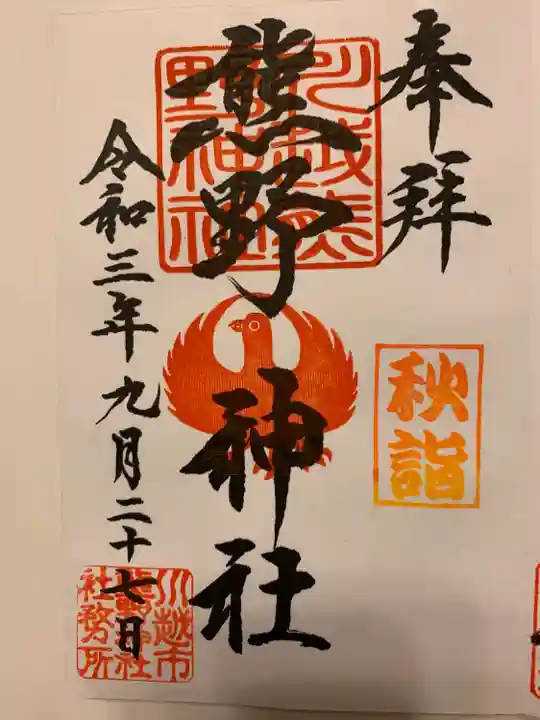 奉拝
秋詣
川越熊野神社
熊野神社
令和三年九月二十七日
川越市熊野神社社務所